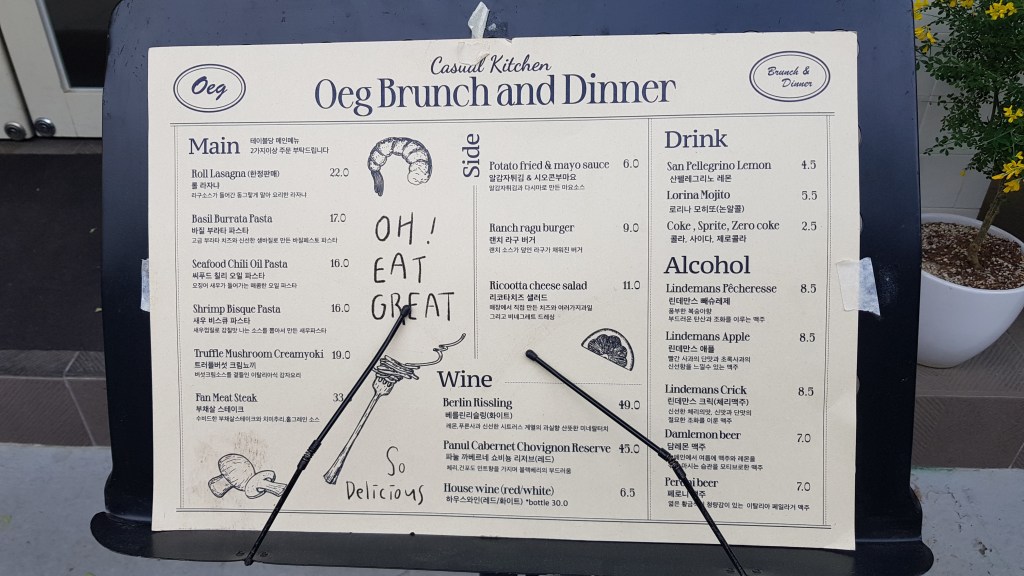 Casual Kitchen
Oeg Brunch and Dinner
Oeg
Brunch &
Dinner
Main
테이블당 메인메뉴
2가지이상 주문 부탁드립니다
Roll Lasagna (한정판매) 22.0
롤 라자냐
라구소스가 들어간 동그랗게 말아 요리한 라자냐
Basil Burrata Pasta 17.0
바질 부라타 파스타
고급 부라타 치즈와 신선한 생바질로 만든 바질페스토 파스타
Seafood Chili Oil Pasta 16.0
씨푸드 칠리 오일 파스타
오징어 새우가 들어가는 매콤한 오일 파스타
Shrimp Bisque Pasta 16.0
새우 비스큐 파스타
새우껍질로 감칠맛 나는 소스를 뽑아서 만든 새우파스타
Truffle Mushroom Creamyoki 19.0
트러플버섯 크림뇨끼
버섯크림소스를 곁들인 이탈리아식 감자요리
Pan Meat Steak 33
부채살 스테이크
수비드한 부채살스테이크와 치미추리,홀그레인 소스
OH!
EAT
GREAT
So
Delicious
Side
Potato fried & mayo sauce 6.0
알감자튀김 & 시오콘부마요
알감자튀김과 다시마로 만든 마요소스
Ranch ragu burger 9.0
랜치 라구 버거
랜치 소스가 담인 라구가 채워진 버거
Ricootta cheese salad 11.0
리코타치즈 샐러드
매장에서 직접 만든 치즈와 여러가지과일
그리고 비네그레트 드레싱
Wine
Berlin Rissling 49.0
베를린리슬링(화이트)
레몬,푸른사과 신선한 시트러스 계열의 과실향 산뜻한 미네랄터치
Panul Cabernet Chovignon Reserve 45.0
파눌 까베르네 쇼비뇽 리저브(레드)
체리,건포도 민트향을 가지며 블랙베리의 부드러움
House wine (red/white) 6.5
하우스와인(레드/화이트) *bottle 30.0
Drink
San Pellegrino Lemon 4.5
산펠레그리노 레몬
Lorina Mojito 5.5
로리나 모히또(논알콜)
Coke , Sprite, Zero coke 2.5
콜라, 사이다, 제로콜라
Alcohol
Lindemans Pêcheresse 8.5
린데만스 빼슈레제
풍부한 복숭아향
부드러운 탄산과 조화를 이루는 맥주
Lindemans Apple 8.5
린데만스 애플
빨간 사과의 단맛과 초록사과의
신선함을 느낄수 있는 맥주
Lindemans Crick 8.5
린데만스 크릭(체리맥주)
신선한 체리의맛, 신맛과 단맛의
절묘한 조화를 이룬 맥주
Damlemon beer 7.0
담레몬 맥주
에서 여름에 맥주와 레몬을
마시는 습관을 모티브로한 맥주
beer 7.0
페로니 맥주
옅은 황금색의 청량감이 있는 이탈리아 페일라거 맥주